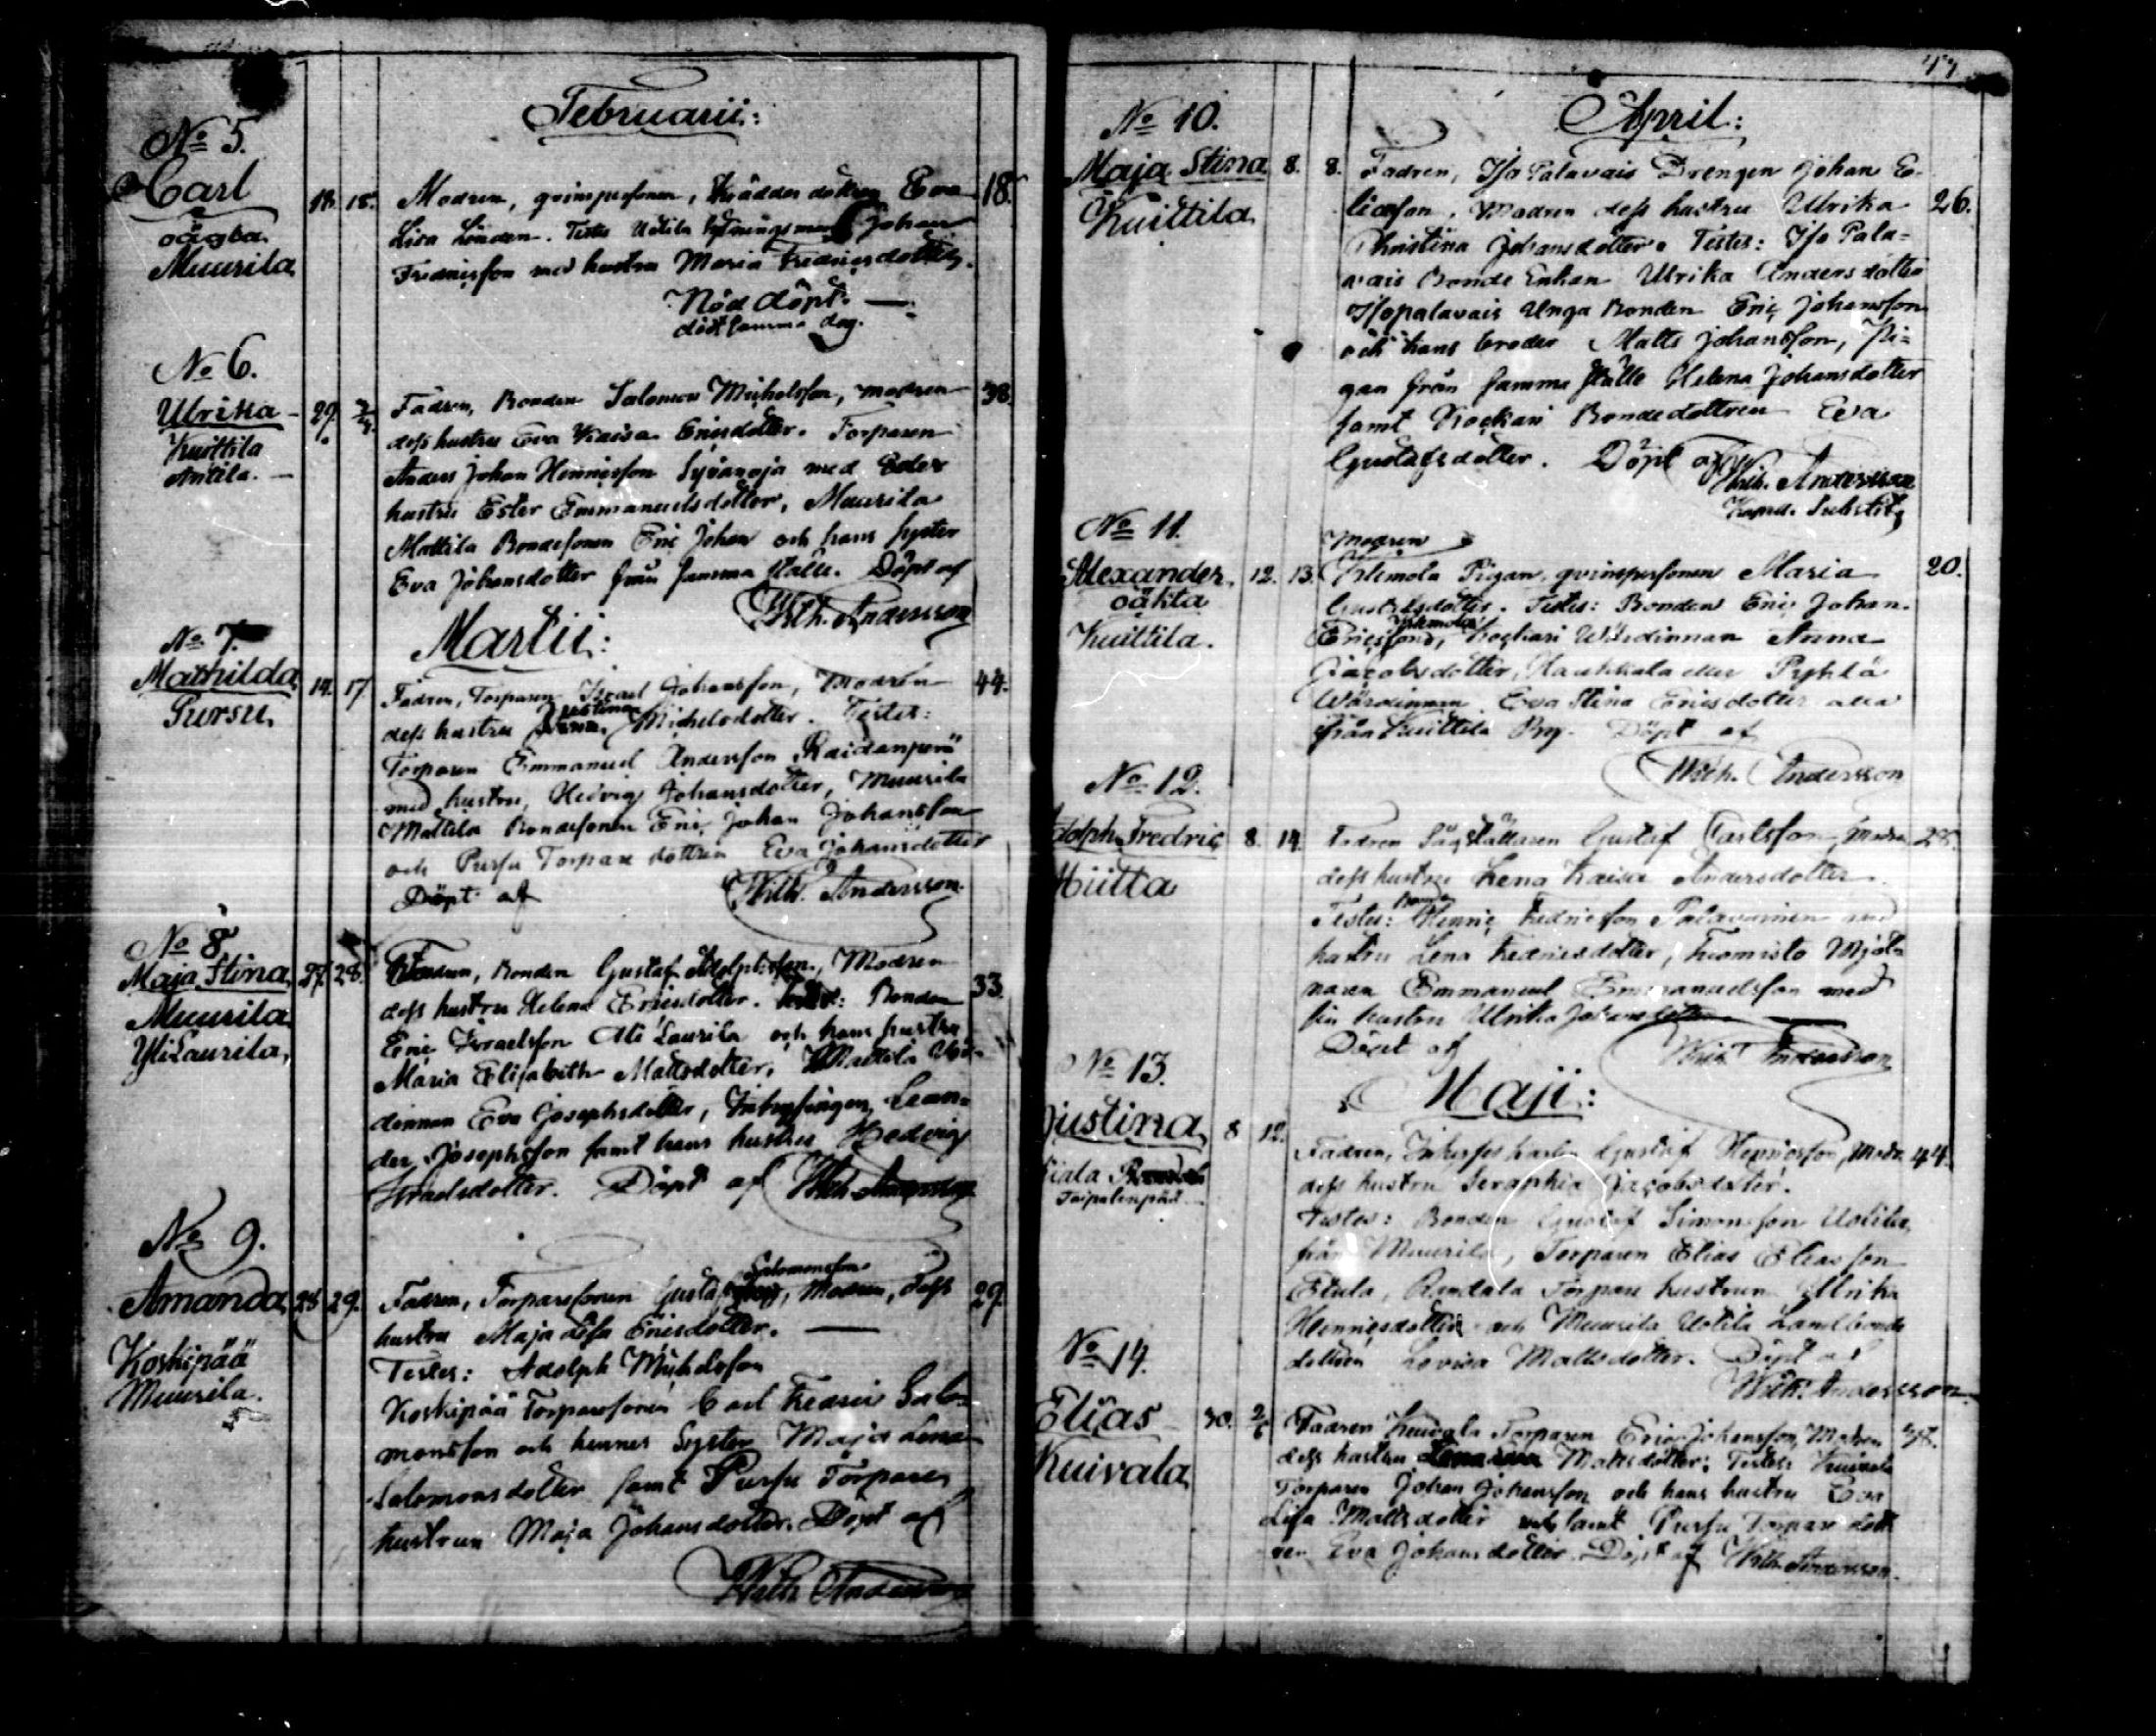 Februarii:
No 5.
Carl
oägta
Muurila
18. 18.
Modren, qvinspersonen, Skräddar dottren Eva 18.
Lisa Lönden. Testes Uotila Johan
Fredricsson med hustru Maria Fredricsdotter.
Nöd döpt. —
död samma dag.
No 6.
Ulrika
Kuittila
Anttila. —
29. 2/3.
Fadren, Bonden Salomon Michelsson, modren 38.
dess hustru Eva Kaisa Ericsdotter. Torparen
Anders Johan Henricsson Syvänoja med
hustru Ester Emmanuelsdotter, Muurila
Mattila Bondesonen Eric Johan och hans syster
Eva Johansdotter från samma ställe. Döpt af
Wilh. Andersson
Martii:
No 7.
Mathilda
Pursu.
14. 17
Fadren, Torparen Israel Johansson, Modren 44.
dess hustru Justina Michelsdotter. Testes:
Torparen Emmanuel Andersson Raidanperä
med hustru, Hedvig Johansdotter, Muurila
Mattila Bondesonen Eric Johan Johansson
och Pursu Torpare dottren Eva Johansdotter
Döpt af Wilh. Andersson.
No 8
Maja Stina
Muurila
Yli Laurila,
27. 28.
Fadren, Bonden Gustaf Adolphsson, Modren
dess hustru Helena Ericsdotter. Testes: Bonden 33.
Eric Israelsson Ali Laurila och hans hustru
Maria Elisabeth Mattsdotter, Mattila Vär-
dinnan Eva Josephsdotter, Inhysingen Lean-
der Josephsson samt hans hustru Hedvig
Israelsdotter. Döpt af Wilh. Andersson
No 9.
Amanda
Koskipää
Muurila.
28 29.
Salomonsson
Fadren, Torparesonen Gustaf, Modren, dess 29.
hustru Maja Lisa Ericsdotter. —
Testes: Adolph Michelsson
Koskipää Torparesonen Carl Fredric Salo-
monsson och hennes Syster Maja Lena
Salomonsdotter samt Pursu Torpare
hustrun Maja Johansdotter. Döpt af
Wilh. Andersson
47
April:
No 10.
Maja Stina
Kuittila
8. 8.
Fadren, Iso Palavais Drengen Johan E-
liasson, Modren dess hustru Ulrika 26.
Christina Johansdotter. Testes: Iso Pala-
vais Bonde Enkan Ulrika Andersdotter
Isopalavais Unga Bonden Eric Johansson
och hans broder Matts Johansson, Pi-
gan från samma ställe Helena Johansdotter
samt Kockari Bondedottren Eva
Gustafsdotter. Döpt af
Wilh. Andersson
No 11.
Alexander.
oäkta
Kuittila.
12. 13.
Modren
Klemola Pigan, qvinspersonen Maria 20.
Gustafsdotter. Testes: Bonden Eric Johan
Klemola
Ericsson, Kockari Wärdinnan Anna
Jacobsdotter, Haukkala eller Pyhtä
Wärdinnan Eva Stina Ericsdotter alla
från Kuittila By. Döpt af
Wilh. Andersson
No 12.
Adolph Fredric
Hiitta
8. 14.
Fadren Gustaf Carlsson, Modren 28.
dess hustru Lena Kaisa Andersdotter
Testes: Henric Fredricsson Palavainen med
hustru Lena Fredricsdotter, Kuomisto Mjöl-
naren Emmanuel Emmanuelsson med
sin hustru Ulrika Johansdotter
Döpt af Wilh. Andersson
Maji:
No 13.
Justina
Toipalenpää
8 12.
Fadren, Inhyses karlen Gustaf Henricsson, Modren 44.
dess hustru Seraphia Jacobsdotter.
Testes: Bonden Gustaf Simonsson Uotila,
från Muurila, Torparen Elias Eliasson
Etula, Randala Torpare hustrun Ulrika
Henricsdotter och Muurila Uotila Landbonde
dottren Lovisa Mattsdotter. Döpt af
Wilh. Andersson
No 14.
Elias
Kuivala
30. 2/6
Fadren Kuivala Torparen Eric Johansson, Modren
dess hustru Mattsdotter; Testes Kuivala
Torparen Johan Johansson och hans hustru Eva
Lisa Mattsdotter samt Pursu Torpare dott
ren Eva Johansdotter. Döpt af Wilh. Andersson.